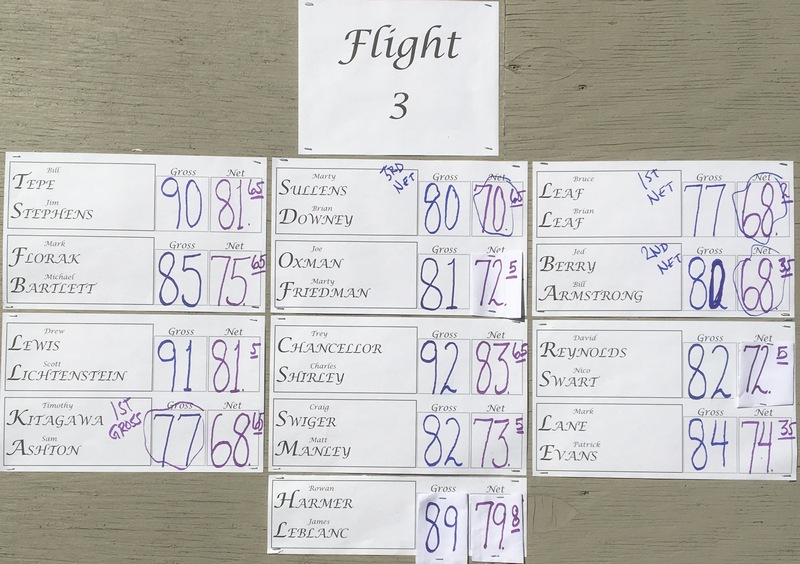 Flight
3
Bill
TEPE
Jim
STEPHENS
Gross Net
90 81.65
Mark
FLORAK
Michael
BARTLETT
Gross Net
85 75.65
Drew
LEWIS
Scott
LICHTENSTEIN
Gross Net
91 81.5
Timothy
KITAGAWA
Sam
ASHTON
1ST
GROSS
Gross Net
77 68.65
Marty
SULLENS
Brian
DOWNEY
3RD
NET
Gross Net
80 70.65
Joe
OXMAN
Marty
FRIEDMAN
Gross Net
81 72.5
Trey
CHANCELLOR
Charles
SHIRLEY
Gross Net
92 83.65
Craig
SWIGER
Matt
MANLEY
Gross Net
82 73.5
Rowan
HARMER
James
LEBLANC
Gross Net
89 79.8
Bruce
LEAF
Brian
LEAF
1ST
NET
Gross Net
77 68.
Jed
BERRY
Bill
ARMSTRONG
2ND
NET
Gross Net
80 68.35
David
REYNOLDS
Nico
SWART
Gross Net
82 72.5
Mark
LANE
Patrick
EVANS
Gross Net
84 74.35